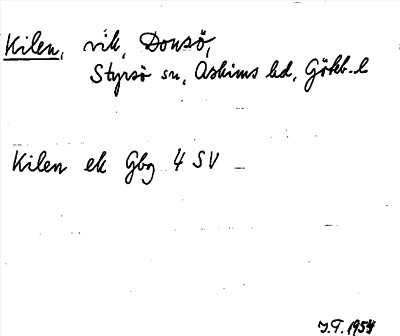 Kilen, vik, Donsö,
Styrsö sn, Askims hd, Göteb. l
Kilen ek Gbg 4 SV
J.F. 1954